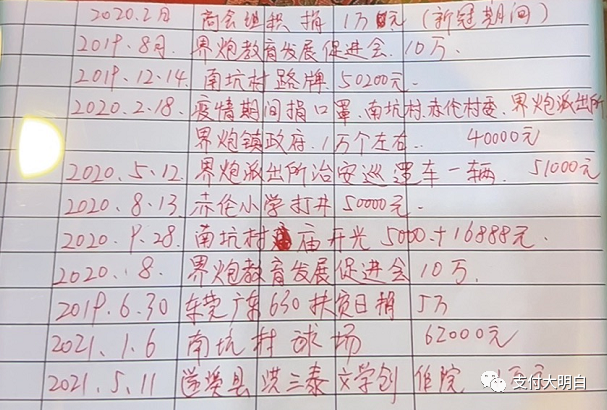 2020.2月 商会组织捐 1万元 (新冠期间)
2019.8月. 界炮教育发展促进会. 10万.
2019.12.14. 南坑村路牌. 50200元.
2020.2.18. 疫情期间捐口罩、南坑村.赤伦村委、界炮派出所
界炮镇政府. 1万个左右. 40000元
2020.5.12. 界炮派出所治安巡逻车一辆. 51000元
2020.8.13. 赤伦小学打井 50000元.
2020.9.28. 南坑村庙开光 5000.+16888元.
2020.8. 界炮教育发展促进会 10万.
2019.6.30 东莞广东630扶贫日捐 5万
2021.1.6 南坑村球场 62000元
2021.5.11 遂溪县 洪三泰文学创作院 万元
支付大明白